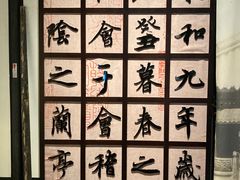 和九年歲
癸丑暮春之
會于會稽
陰之蘭亭